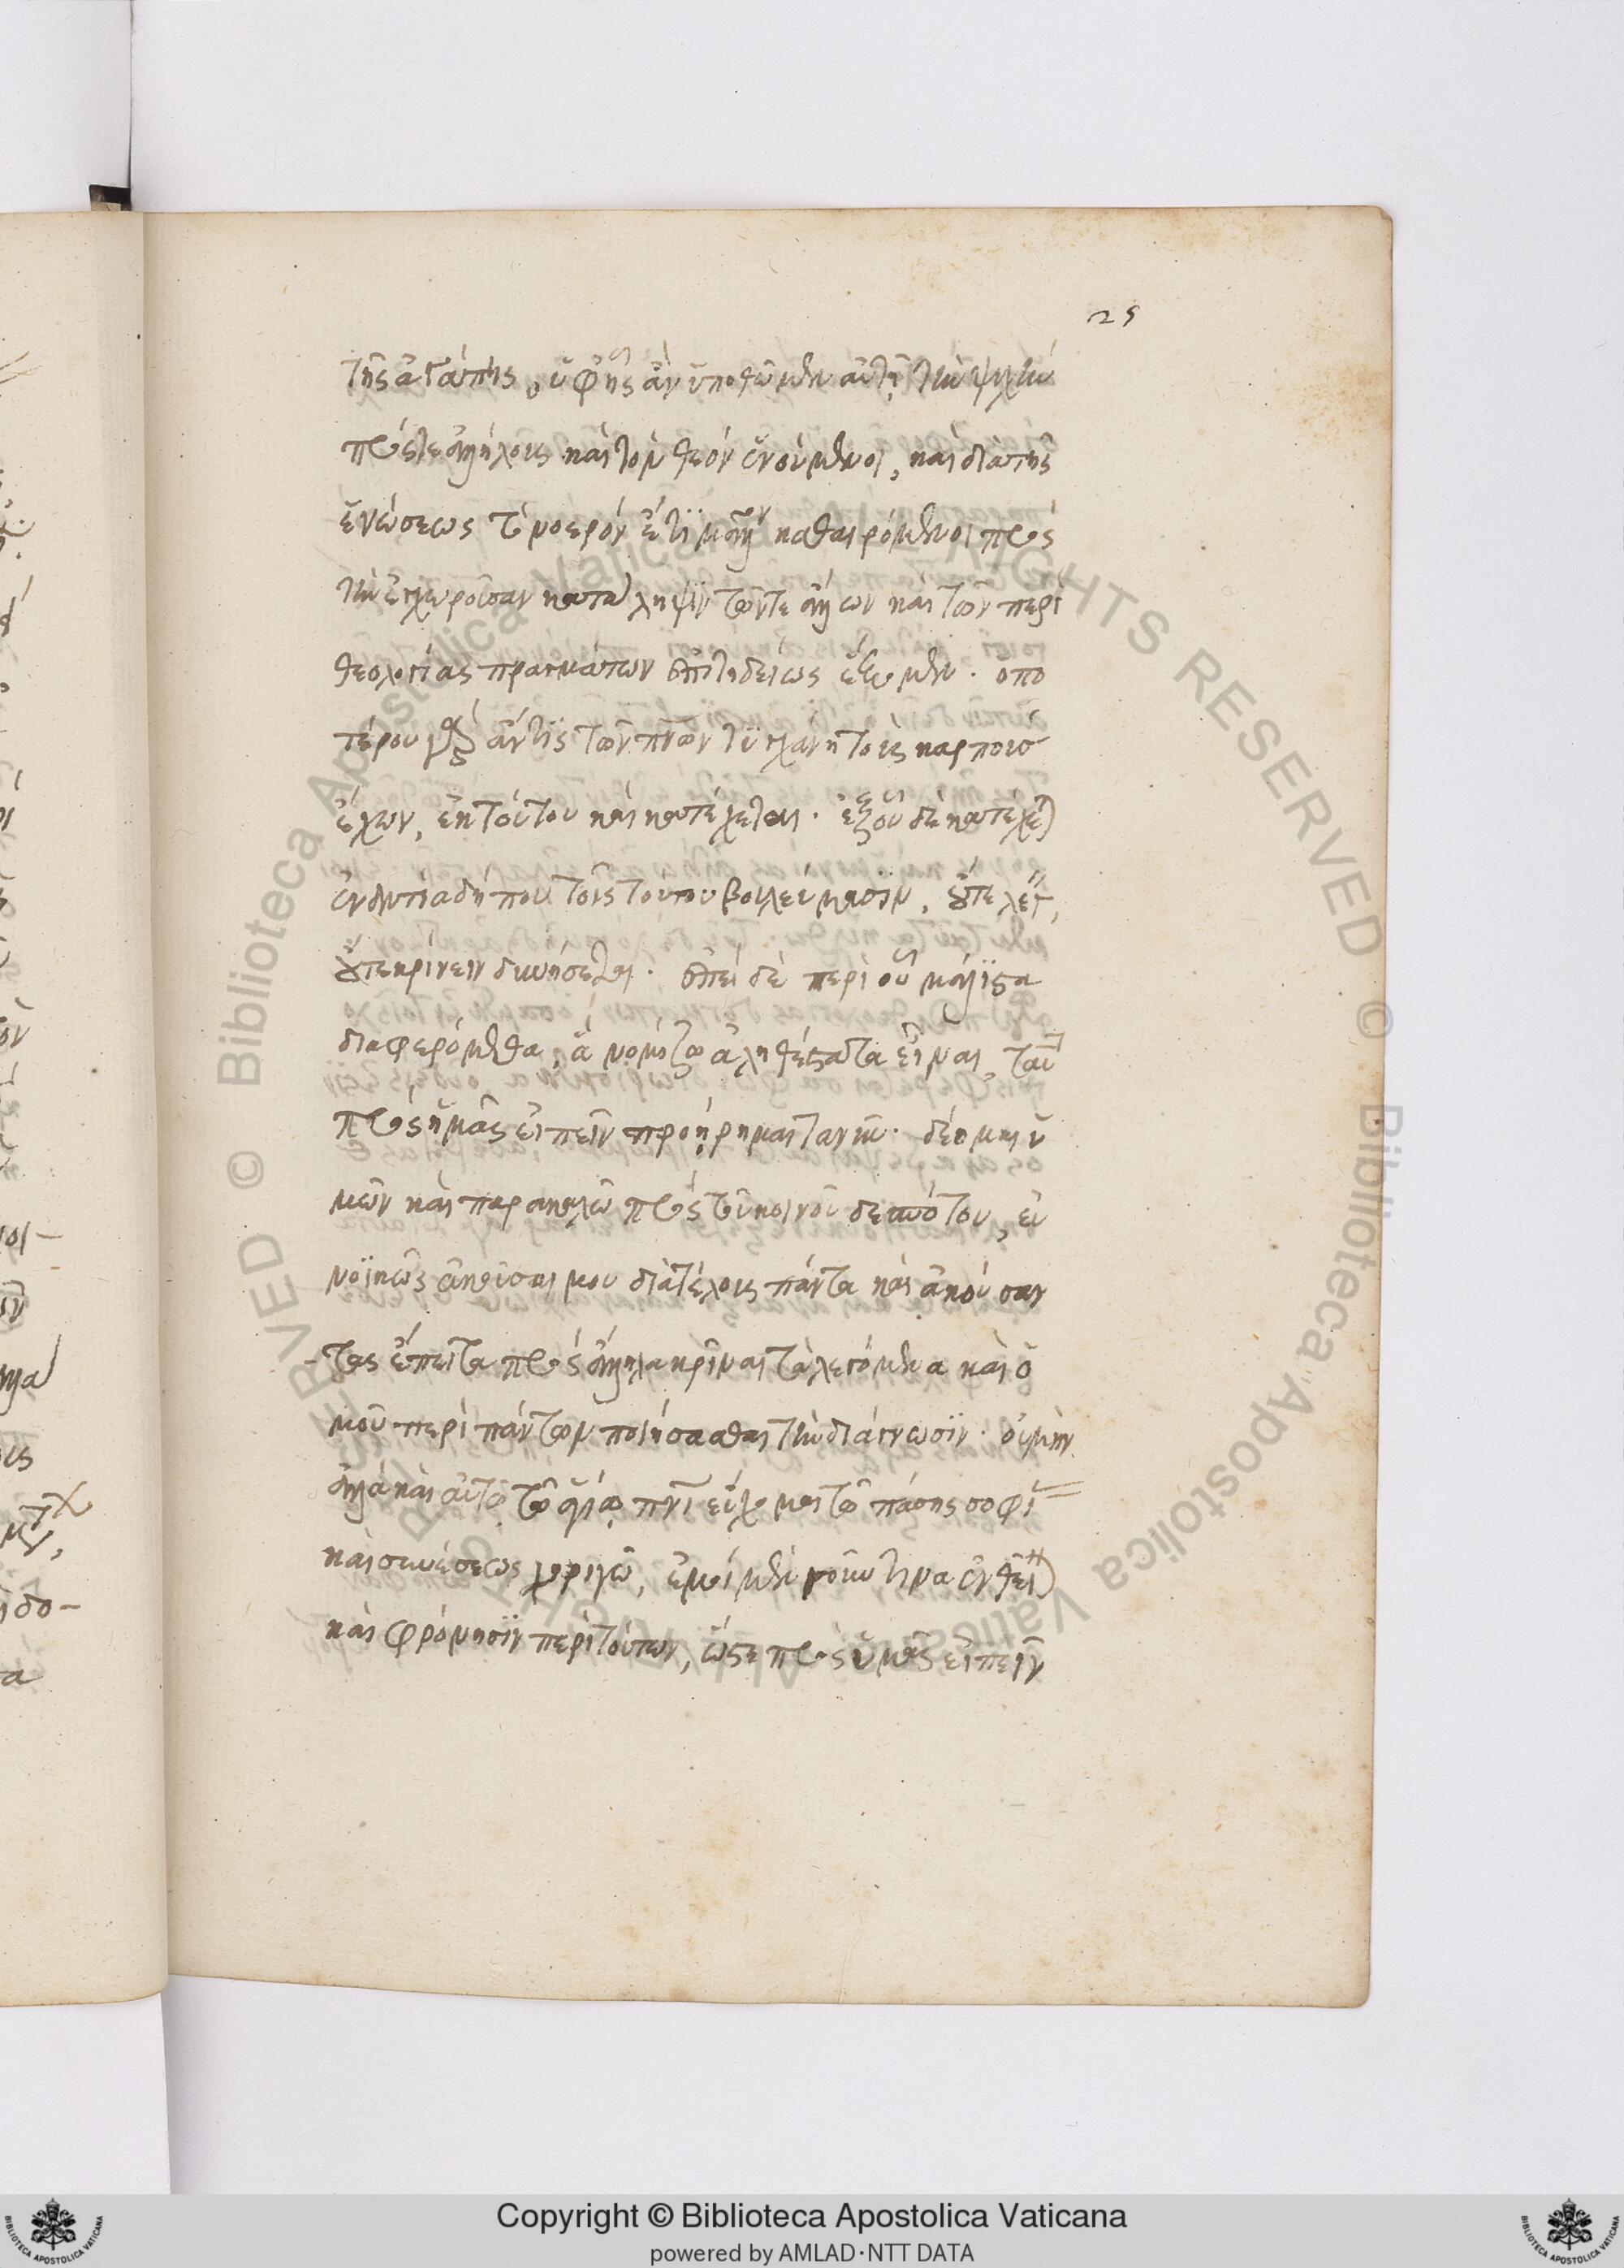 25
τῆς ἀγάπης, ὑφ' ἧς ἂν ὑποθώμεν αὐτῇ τὴν ψυχὴν
πρός τε ἀλλήλους καὶ τὸν θεὸν ἑνούμενοι, καὶ διὰ τῆς
ἑνώσεως τὸ νοερὸν ἔτι μᾶλλον καθαιρόμενοι πρὸς
τὴν ἐγχωροῦσαν κατάληψιν τῶν τε ἄλλων καὶ τῶν περὶ
θεολογίας πραγμάτων ἐπιτηδείως ἕξωμεν. ὁπο
τέρου γὰρ ἄν τις τῶν πνων τυγχάνη τοὺς καρποὺσ
ἔχων, ἐκ τούτου καὶ κατέχεται. ἐξ οὗ δὲ κατέχε
ἐν δήπου τοῖς τούτου βουλεύμασιν,
κρίνειν δυνήσεται. ἐπεὶ δὲ περὶ οὗ μάλιστα
διαφερόμεθα, ἃ νομίζω ἀληθέστατα εἶναι, ταῦ
πρὸς ἡμᾶς εἰπεῖν προήρημαι τανῦν. δέομαι ὑ
μῶν καὶ παρακαλῶ πρὸς τοῦ κοινοῦ δεσπότου, εὐ
νοϊκῶς ἀκοῦσαι μου διὰ τέλους πάντα καὶ ἀκούσαν
τας ἔπειτα πρὸς ἄλληλα κρῖναι τὰ λεγόμενα καὶ ὁ
μοῦ περὶ πάντων ποιήσασθαι τὴν διάγνωσϊν. οὐ μὴν
ἀλλὰ καὶ αὐτῷ τῷ ἁγίῳ πνι εὔχομαι τῷ πάσης σοφί
καὶ συνέσεως χορηγῷ, ἐμοὶ μὲν νοῦν τινα ἐνθεῖ
καὶ φρόνησϊν περὶ τούτων, ὥστε πρὸς ὑμᾶς εἰπεῖν
Copyright © Biblioteca Apostolica Vaticana
powered by AMLAD·NTT DATA